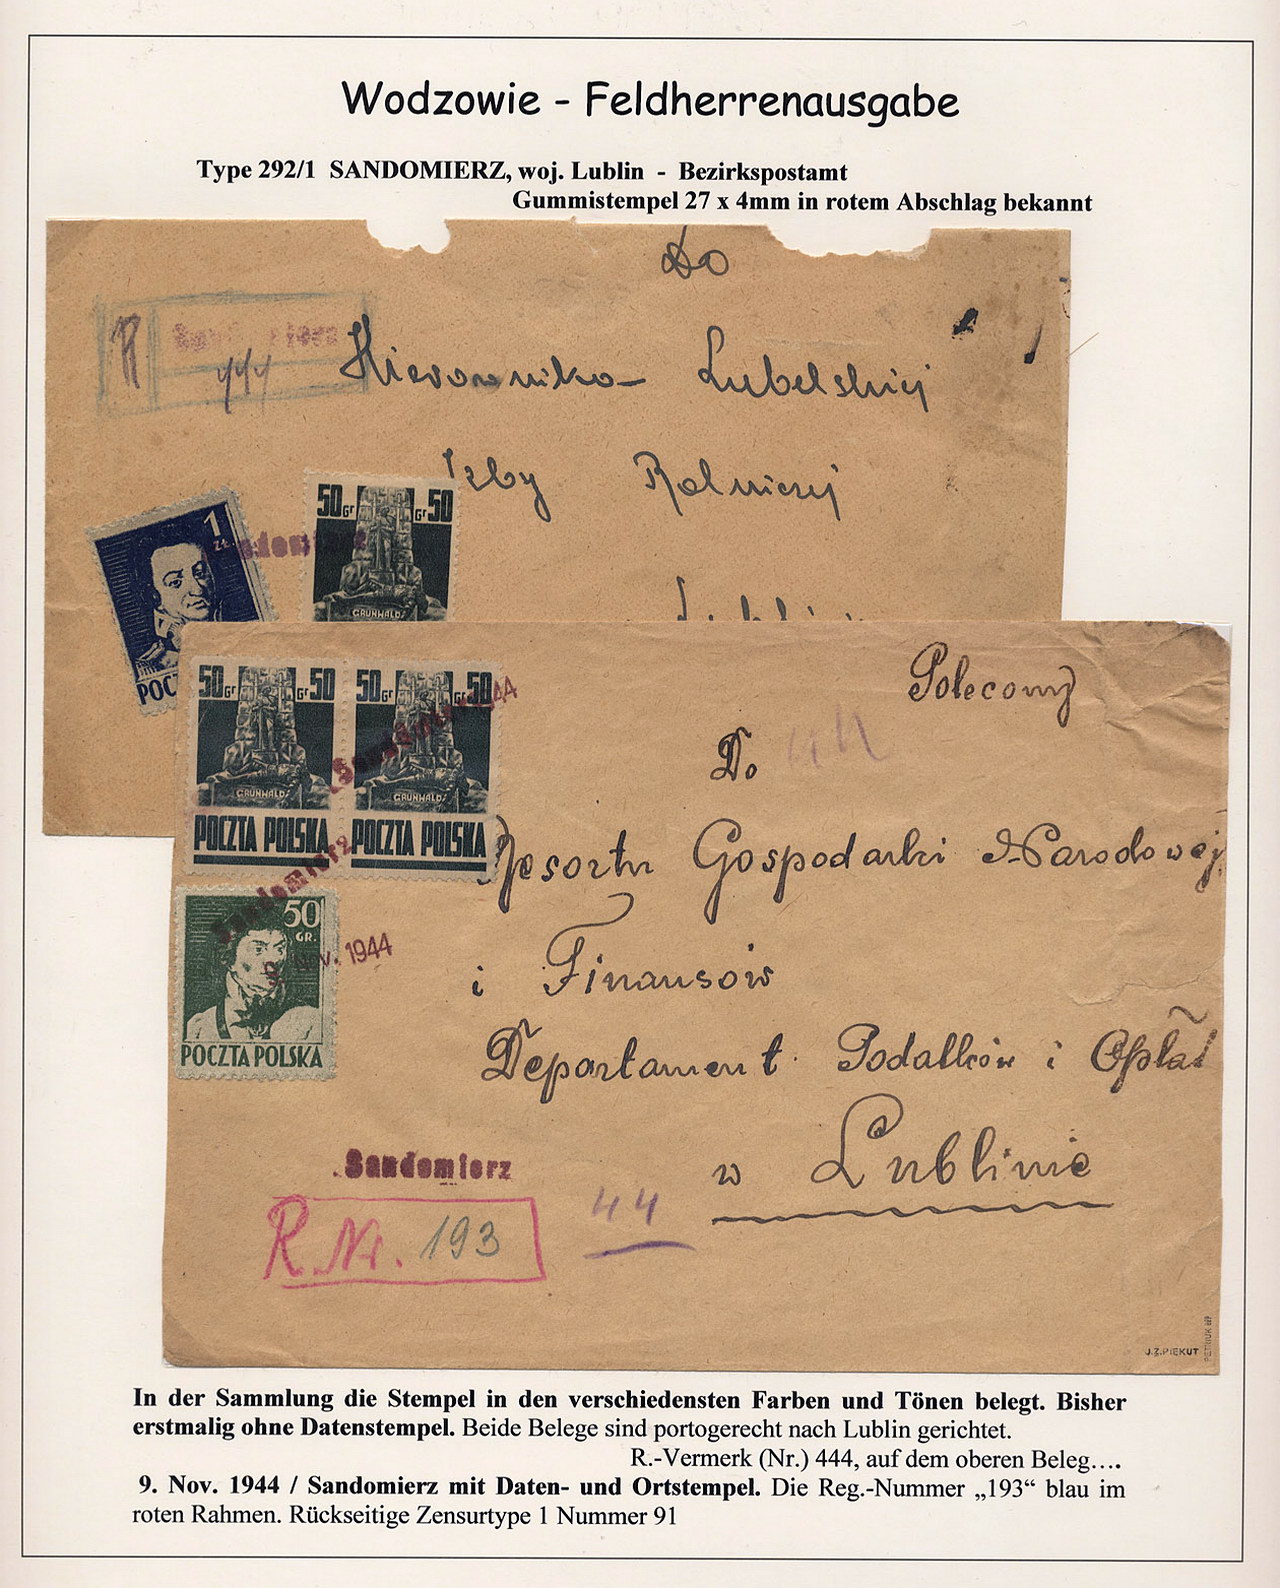 Wodzowie - Feldherrenausgabe
Type 292/1 SANDOMIERZ, woj. Lublin - Bezirkspostamt
Gummistempel 27 x 4mm in rotem Abschlag bekannt
Do
R
444
Kierownika Lubelskiej
Izby Rolniczej
1
ZŁ.
50 Gr Gr 50
GRUNWALD
50 Gr Gr 50 50 Gr Gr 50
GRUNWALD GRUNWALD
POCZTA POLSKA POCZTA POLSKA
Sandomierz
50
GR.
9. Nov. 1944
POCZTA POLSKA
Polecony
Do
Resortu Gospodarki Narodowej
i Finansów
Departament Podatków i Opłat
w Lublinie
Sandomierz
R. Nr. 193
44
J.Z.PIEKUT
In der Sammlung die Stempel in den verschiedensten Farben und Tönen belegt. Bisher
erstmalig ohne Datenstempel. Beide Belege sind portogerecht nach Lublin gerichtet.
R.-Vermerk (Nr.) 444, auf dem oberen Beleg….
9. Nov. 1944 / Sandomierz mit Daten- und Ortstempel. Die Reg.-Nummer „193“ blau im
roten Rahmen. Rückseitige Zensurtype 1 Nummer 91